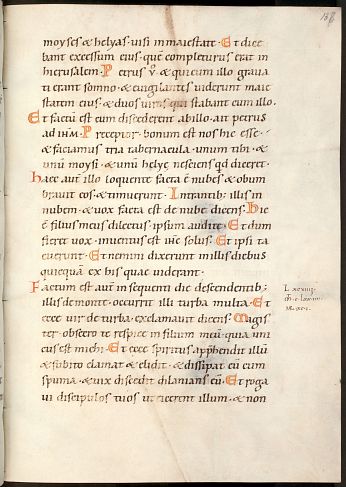 moyses & helyas. uisi in maiestate. Et dice
bant excessum eius. quē completurus erat in
hierusalem. Petrus ṽ & qui cum illo graua
ti erant somno. & euigilantes uiderunt maie
statem eius. & duos uiros qui stabant cum illo.
Et factū est cum discederent ab illo. ait petrus
ad ihm̄. Preceptor. bonum est nos hic esse.
& faciamus tria tabernacula. unum tibi. &
unū moysi. & unū helye. nesciens qd diceret.
haec aut illo loquente facta ē nubes. & obum
brauit eos. & timuerunt. Intrantib; illis in
nubem. & uox facta est de nube dicens. Hic
ē filius meus dilectus. ipsum audite. Et dum
fieret uox. inuentus est ihc solus. Et ipsi ta
cuerunt. Et nemini dixerunt in illis diebus
quicquā ex his quae uiderant.
Factum est aut in sequenti die descendentib;
illis de monte. occurrit illi turba multa. Et
ecce uir de turba. exclamauit dicens. Magis
ter obsecro te respice in filium meū. quia uni
cus est michi. Et ecce spiritus apphendit illū
& subito clamat & elidit. & dissipat eū cum
spuma. & uix discedit dilanians eū. Et roga
ui discipulos tuos ut eicerent illum. & non